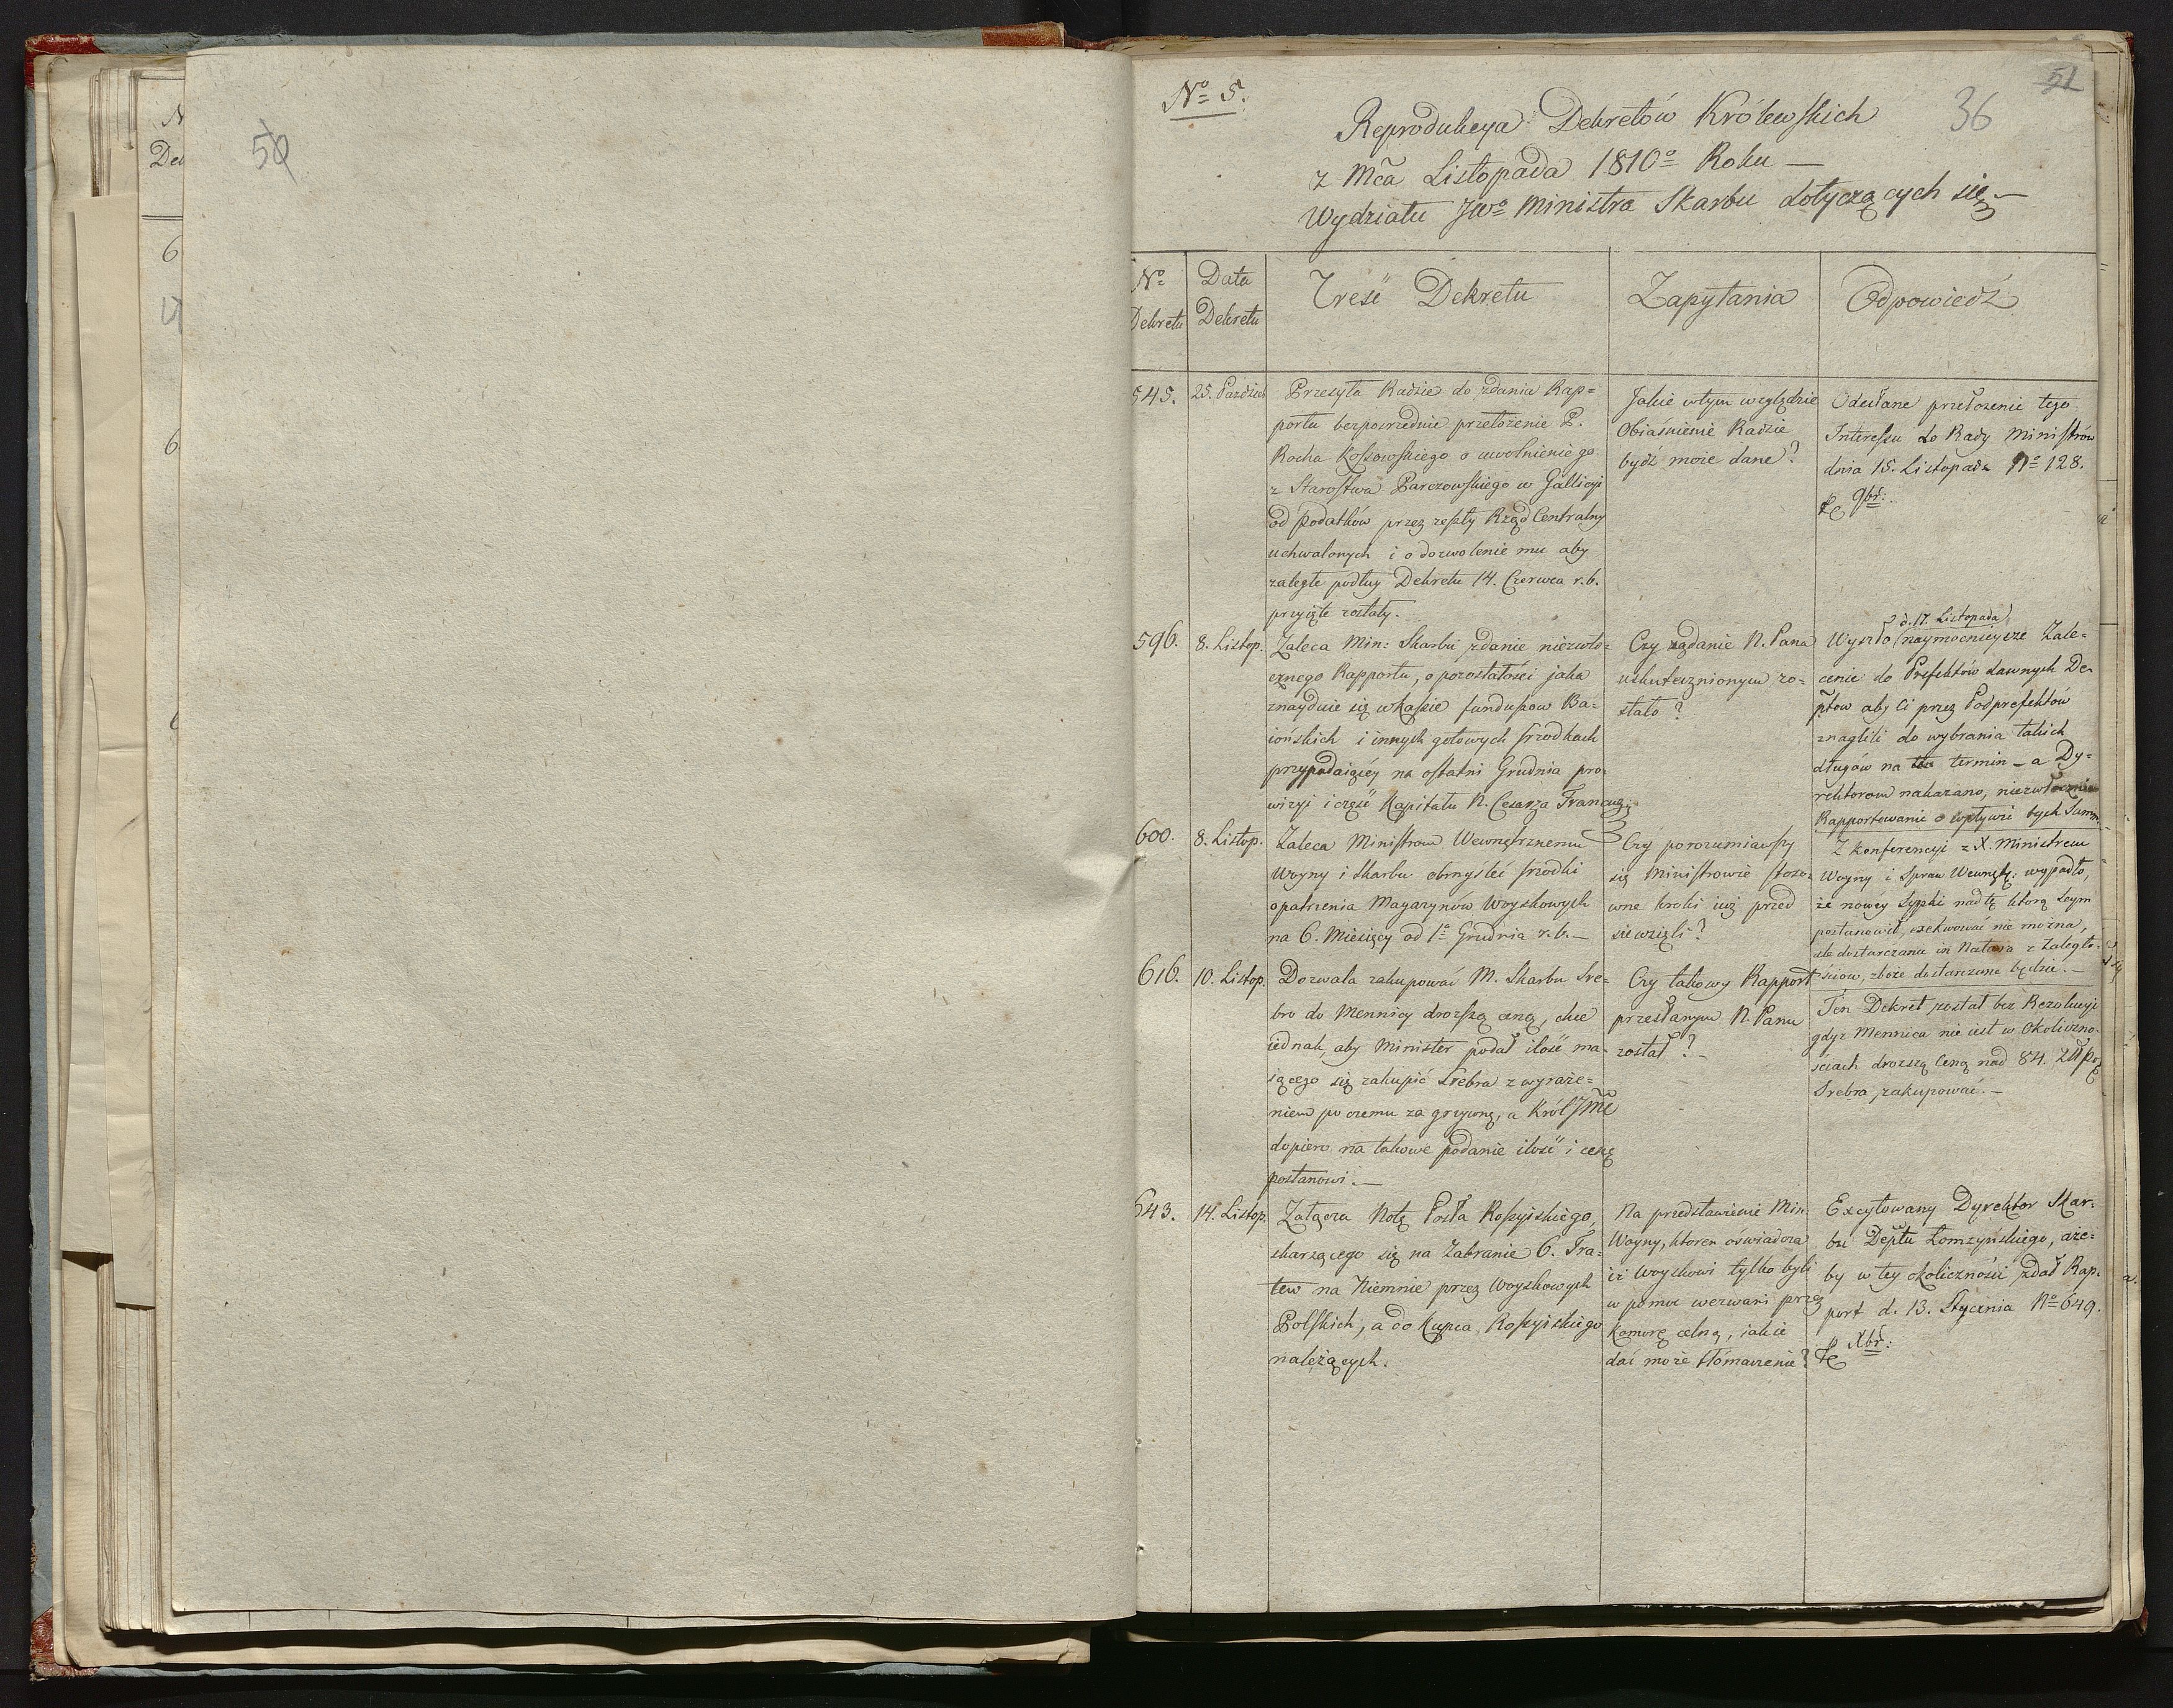 50
N
Dek
6
6
51
36
No 5.
Reprodukcya Dekretów Królewskich
z Mca Listopada 1810o Roku —
Wydziału JWo Ministra Skarbu dotyczących się —
No
Dekretu
Data
Dekretu
Treść Dekretu
Zapytania
Odpowiedź
545.
25. Paździer
Przesyła Radzie do zdania Rap=
portu bezpośrednie przełożenie P.
Rocha Kossowskiego o uwolnienie go
z Starostwa Parczowskiego w Gallicyi
od podatków przez zeszły Rząd Centralny
uchwalonych i o dozwolenie mu aby
zaległe podług Dekretu 14. Czerwca r.b.
przyięte zostały.
Jakie w tym względzie
Obiaśnienie Radzie
bydź może dane?
Odesłane przełożenie tego
Interessu do Rady Ministrów
dnia 15. Listopada No 128.
9br:
596.
8. Listop.
Zaleca Min: Skarbu zdanie niezwło=
cznego Rapportu, o pozostałości jaka
znayduie się w Kassie funduszow Ba=
iońskich i innych gotowych srzodkach
przypadaiącéy na ostatni Grudnia pro=
wizyi i część Kapitału N. Cesarza Francuz:
Czy żądanie N. Pana
uskutecznionym zo=
stało?
d. 17. Listopada
Wyszło naymocnieysze Zale=
cenie do Prefektów dawnych De=
ptow aby Ci przez Podprefektów
znaglili do wybrania takich
długów na ten termin – a Dy=
rektorom nakazano, niezwłoczne
Rapportowanie o wpływie tych Summ.
600.
8. Listop.
Zaleca Ministrom Wewnętrznemu
Woyny i Skarbu obmyślić srzodki
opatrzenia Magazynów Woyskowych
na 6. Miesięcy od 1o Grudnia r.b. —
Czy porozumiawszy
się Ministrowie stoso=
wne kroki iuż przed
siewzięli?
Z Konferencyi z X. Ministrem
Woyny i Spraw Wewnętr: wypadło,
że nowéy Sypki nad tę którą Seym
postanowił, exekwować nie można,
ale dostarczana in Natura z Zaległo=
ściow, zboże dostarczane będzie. —
616.
10. Listop.
Dozwala zakupować M. Skarbu Sre=
bro do Mennicy droższą ceną, chce
iednak, aby Minister podał ilość ma=
iącego się zakupić Srebra z wyraże=
niem po czemu za grzywnę, a Król Jmć
dopiero na takowe podanie ilość i cenę
postanowi. —
Czy takowy Rapport
przesłanym N. Panu
został? —
Ten Dekret został bez Rezolucyi
gdyż Mennica nie iest w Okoliczno=
ściach droższą Ceną nad 84. złp
Srebra zakupować. —
643.
14. Listop.
Załącza Notę Posła Rossyiskiego,
skarzącego się na Zabranie 6. Tra=
tew na Niemnie przez Woyskowych
Polskich, a do Kupca Rossyiskiego
należących.
Na przedstawienie Min.
Woyny, ktoren oświadcza
iż Woyskowi tylko byli
w pomoc wezwani przez
Komorę celną, jakie
dać może tłómaczenie?
Excytowany Dyrektor Skar=
bu Deptu Łomżyńskiego, aże=
by w tey okoliczności zdał Rap=
port d. 13. Stycznia No 649.
Xbr: